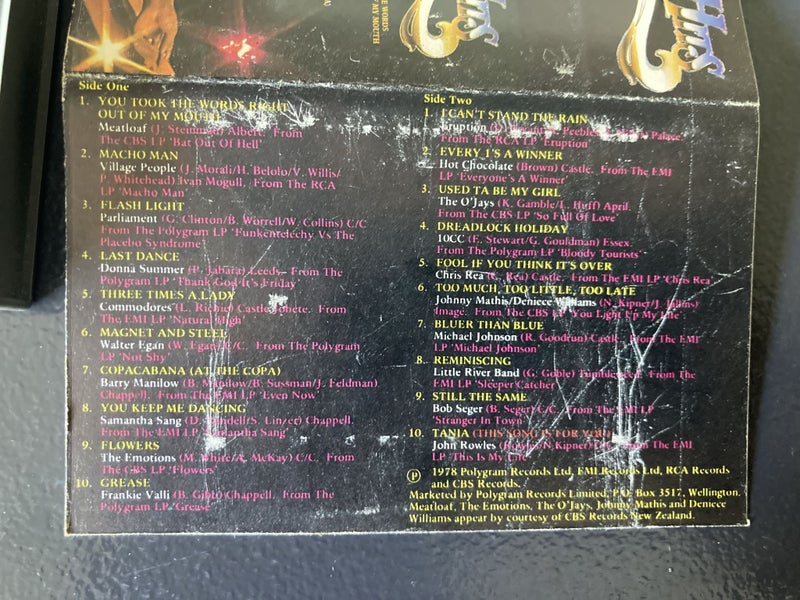 E WORDS
MY MOUTH
Hits
Hits
Side One
1. YOU TOOK THE WORDS RIGHT
OUT OF MY MOUTH
Meatloaf (J. Steinman) Albert. From
The CBS LP 'Bat Out Of Hell'
2. MACHO MAN
Village People (J. Morali/H. Belolo/V. Willis/
P. Whitehead) Ivan Mogull. From The RCA
LP 'Macho Man'
3. FLASH LIGHT
Parliament (G. Clinton/B. Worrell/W. Collins) C/C
From The Polygram LP 'Funkentelechy Vs The
Placebo Syndrome'
4. LAST DANCE
Donna Summer (P. Jabara) Leeds. From The
Polygram LP 'Thank God It's Friday'
5. THREE TIMES A LADY
Commodores (L. Richie) Castle/Jobete. From
The EMI LP 'Natural High'
6. MAGNET AND STEEL
Walter Egan (W. Egan) C/C. From The Polygram
LP 'Not Shy'
7. COPACABANA (AT THE COPA)
Barry Manilow (B. Manilow/B. Sussman/J. Feldman)
Chappell. From The EMI LP 'Even Now'
8. YOU KEEP ME DANCING
Samantha Sang (D. /S. Linzer) Chappell.
From The EMI LP 'Samantha Sang'
9. FLOWERS
The Emotions (M. White/A. McKay) C/C. From
The CBS LP 'Flowers'
10. GREASE
Frankie Valli (B. Gibb) Chappell. From The
Polygram LP 'Grease'
Side Two
1. I CAN'T STAND THE RAIN
Eruption Peebles Palace.
From The RCA LP 'Eruption'
2. EVERY 1'S A WINNER
Hot Chocolate (Brown) Castle. From The EMI
LP 'Everyone's A Winner'
3. USED TA BE MY GIRL
The O'Jays (K. Gamble/L. Huff) April.
From The CBS LP 'So Full Of Love'
4. DREADLOCK HOLIDAY
10CC (E. Stewart/G. Gouldman) Essex.
From The Polygram LP 'Bloody Tourists'
5. FOOL IF YOU THINK IT'S OVER
Chris Rea (C. Rea) Castle. From The EMI LP 'Chris Rea'
6. TOO MUCH, TOO LITTLE, TOO LATE
Johnny Mathis/Deniece Williams (N. Kipner/J. Vallins)
Image. From The CBS LP 'You Light Up My Life'
7. BLUER THAN BLUE
Michael Johnson (R. Goodrun) Castle. From The EMI
LP 'Michael Johnson'
8. REMINISCING
Little River Band (G. Goble) Tumbleweed. From The
EMI LP 'Sleeper Catcher'
9. STILL THE SAME
Bob Seger (B. Seger) C/C. From The EMI LP
'Stranger In Town'
10. TANIA (THIS SONG IS FOR YOU)
John Rowles (Rowles/N. Kipner) From The EMI
LP 'This Is My Life'
Ⓟ 1978 Polygram Records Ltd, EMI Records Ltd, RCA Records
and CBS Records.
Marketed by Polygram Records Limited, P.O. Box 3517, Wellington.
Meatloaf, The Emotions, The O'Jays, Johnny Mathis and Deniece
Williams appear by courtesy of CBS Records New Zealand.